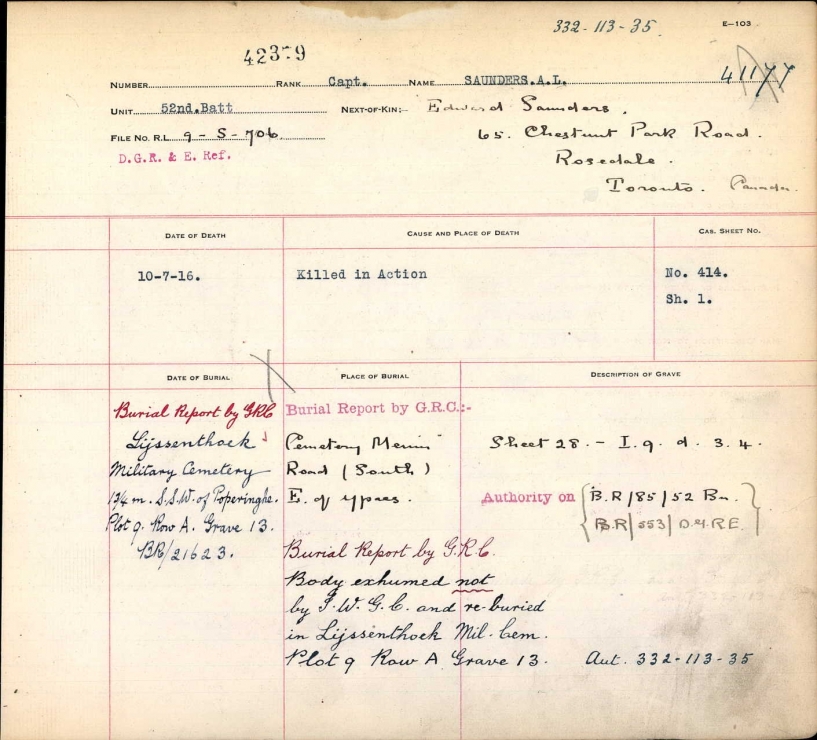 332-113-35
E-103
42379
NUMBER RANK Capt. NAME SAUNDERS.A.L.
41177
UNIT 52nd.Batt NEXT-OF-KIN:- Edward Saunders,
FILE No. R.L. 9-S-706 65. Chestnut Park Road.
D.G.R. & E. Ref. Rosedale.
Toronto. Canada.
DATE OF DEATH CAUSE AND PLACE OF DEATH CAS. SHEET NO.
10-7-16. Killed in Action No. 414.
Sh. 1.
DATE OF BURIAL PLACE OF BURIAL DESCRIPTION OF GRAVE
Burial Report by GRC
Lijssenthoek
Military Cemetery
1¾ m. S.S.W. of Poperinghe.
Plot 9. Row A. Grave 13.
BR/21623.
Burial Report by G.R.C.:-
Cemetery Menin
Road (South)
E. of Ypres.
Burial Report by G.R.C.
Body exhumed not
by I.W.G.C. and re-buried
in Lijssenthoek Mil. Cem.
Plot 9 Row A Grave 13.
Sheet 28. - I. 9. d. 3. 4.
Authority on B.R/85/52 Bn.
B.R/553/D.G.R.E.
Aut. 332-113-35